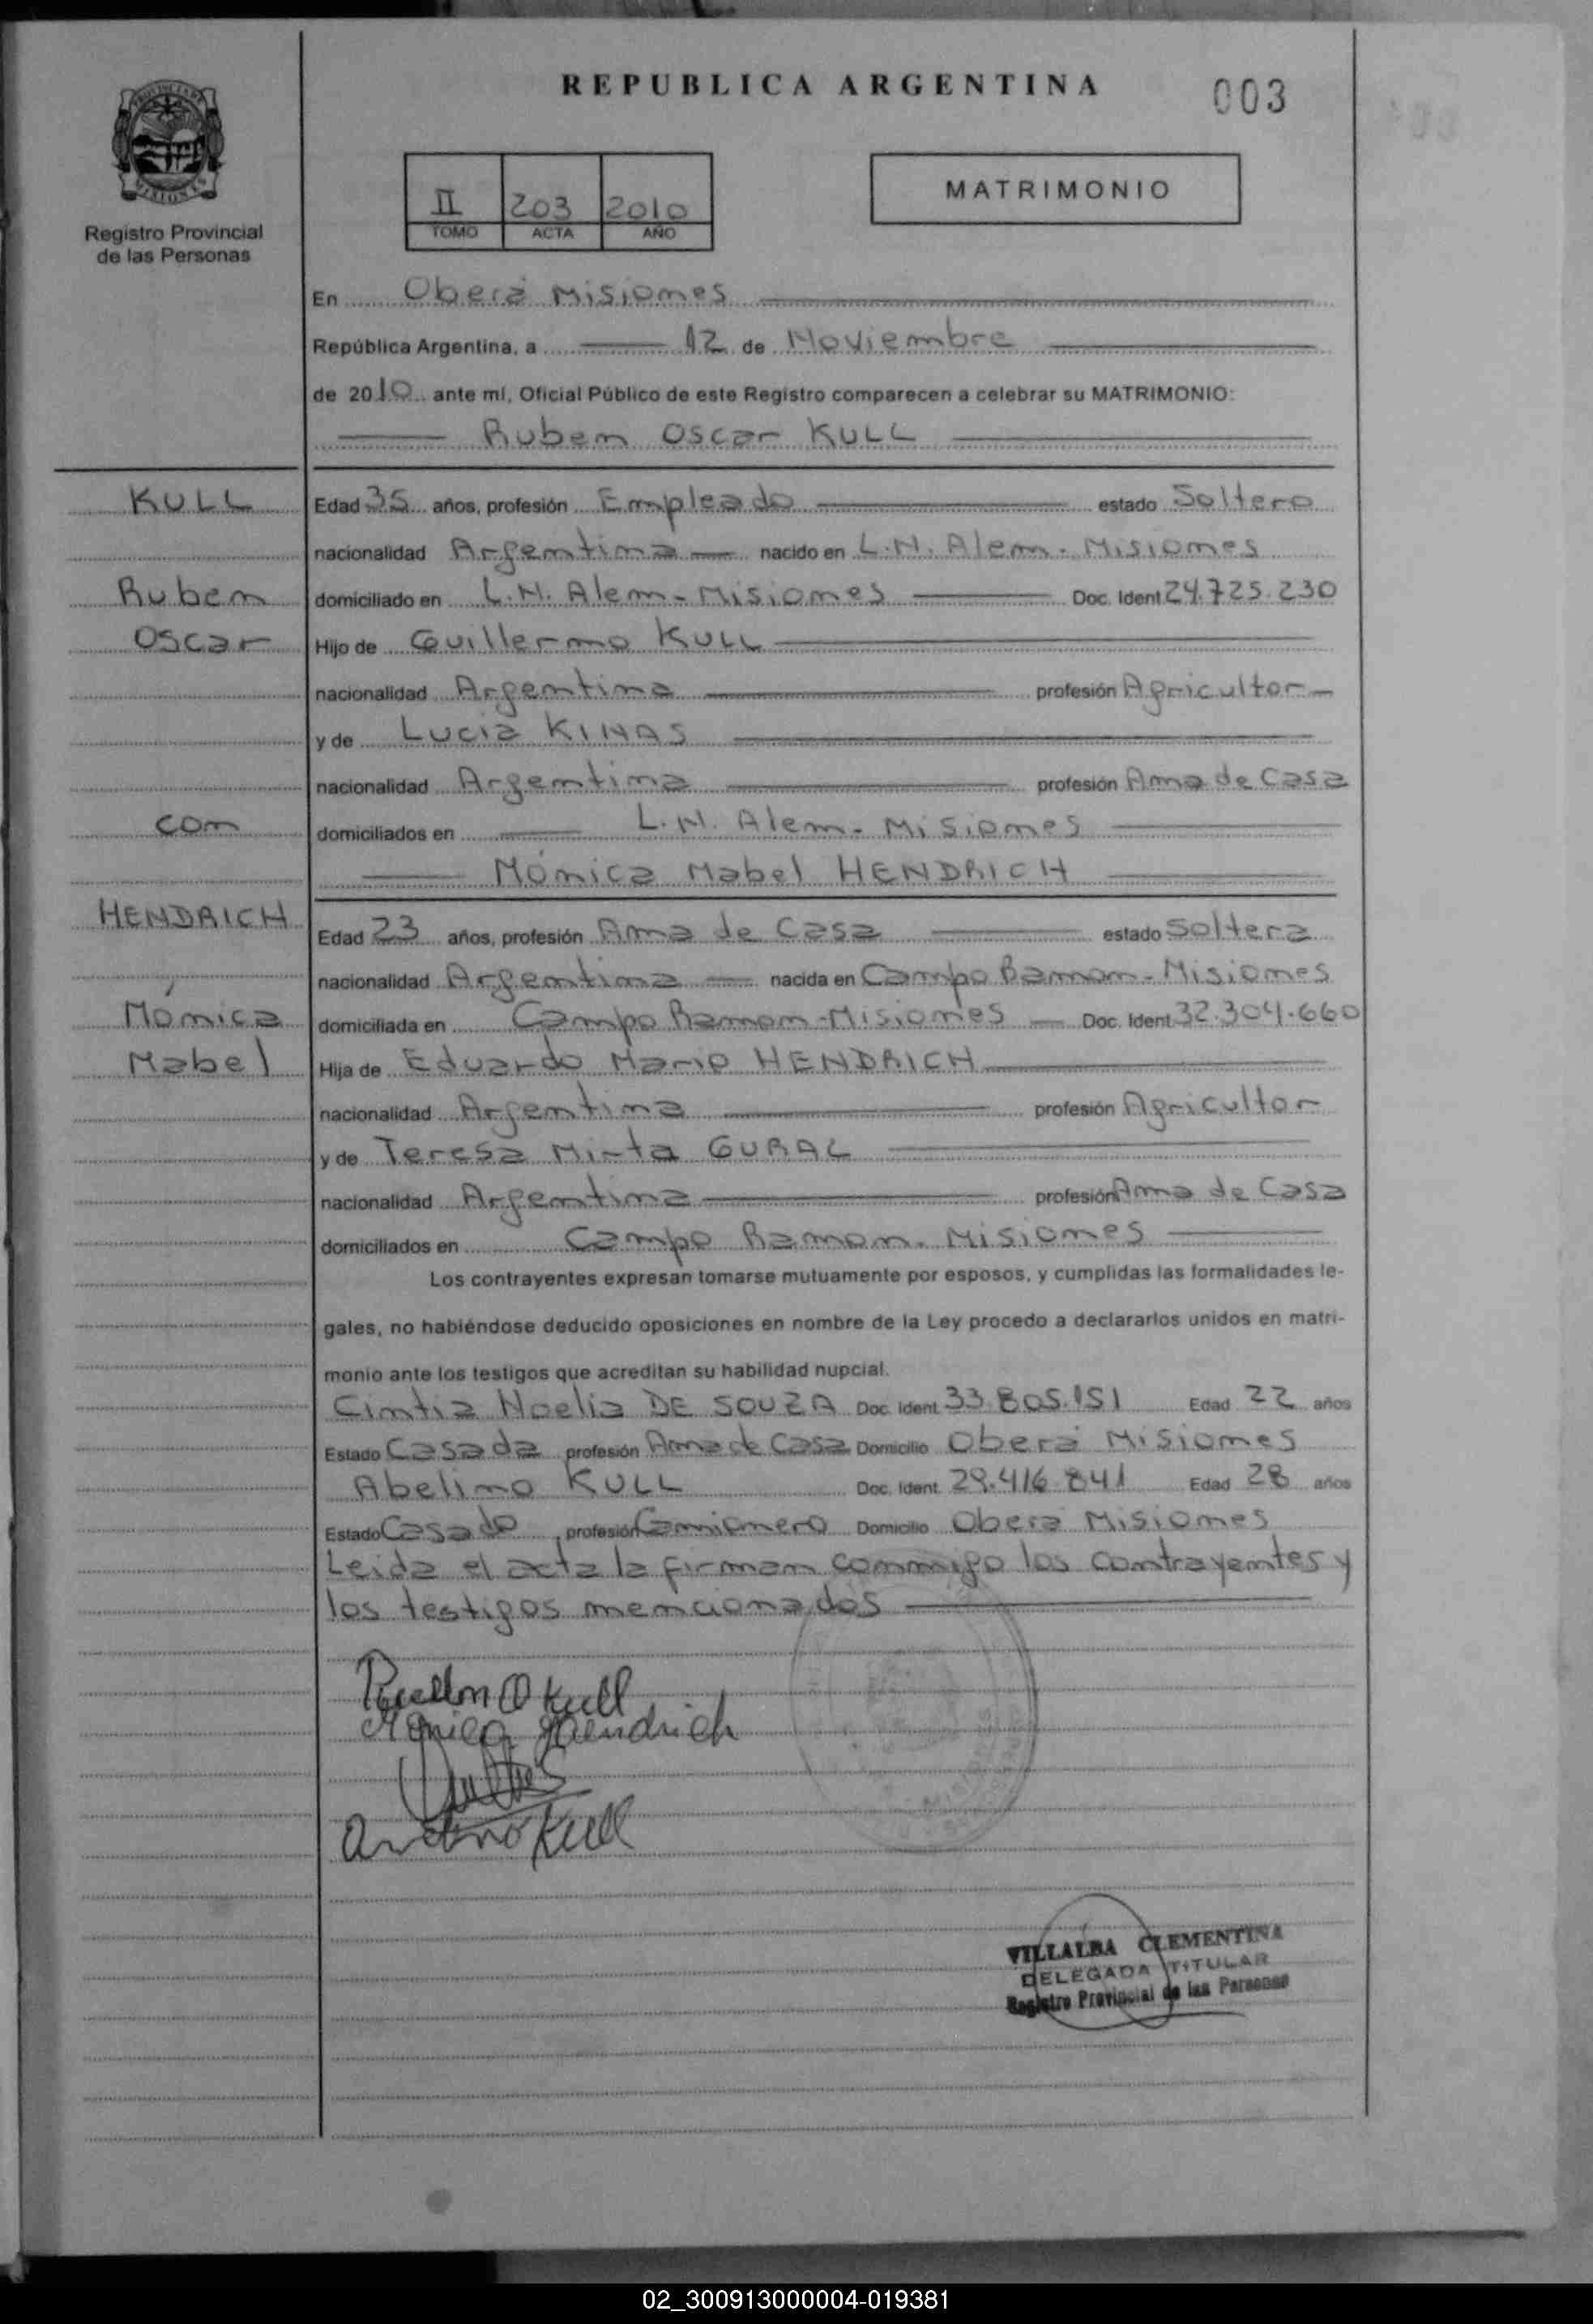 REPUBLICA ARGENTINA
003
Registro Provincial
de las Personas
II 203 2010
TOMO ACTA AÑO
MATRIMONIO
En Oberá Misiones
República Argentina, a 12 de Noviembre
de 2010 ante mí, Oficial Público de este Registro comparecen a celebrar su MATRIMONIO:
Ruben Oscar KULL
KULL
Ruben
Oscar
con
HENDRICH
Mónica
Mabel
Edad 35 años, profesión Empleado estado Soltero
nacionalidad Argentina nacido en L.N. Alem - Misiones
domiciliado en L.N. Alem - Misiones Doc. Ident 24.725.230
Hijo de Guillermo KULL
nacionalidad Argentina profesión Agricultor
y de Lucia KINAS
nacionalidad Argentina profesión Ama de Casa
domiciliados en L.N. Alem - Misiones
Mónica Mabel HENDRICH
Edad 23 años, profesión Ama de Casa estado Soltera
nacionalidad Argentina nacida en Campo Ramon - Misiones
domiciliada en Campo Ramon - Misiones Doc. Ident 32.304.660
Hija de Eduardo Mario HENDRICH
nacionalidad Argentina profesión Agricultor
y de Teresa Mirta GURAL
nacionalidad Argentina profesión Ama de Casa
domiciliados en Campo Ramon - Misiones
Los contrayentes expresan tomarse mutuamente por esposos, y cumplidas las formalidades le-
gales, no habiéndose deducido oposiciones en nombre de la Ley procedo a declararlos unidos en matri-
monio ante los testigos que acreditan su habilidad nupcial.
Cintia Noelia DE SOUZA Doc. Ident. 33.805.151 Edad 22 años
Estado Casada profesión Ama de Casa Domicilio Oberá Misiones
Abelino KULL Doc. Ident. 29.416.841 Edad 28 años
Estado Casado profesión Camionero Domicilio Oberá Misiones
Leida el acta la firman conmigo los contrayentes y
los testigos mencionados
O Kull
Monica Hendrich
Kull
VILLALBA CLEMENTINA
DELEGADA TITULAR
Registro Provincial de las Personas
02_300913000004-019381